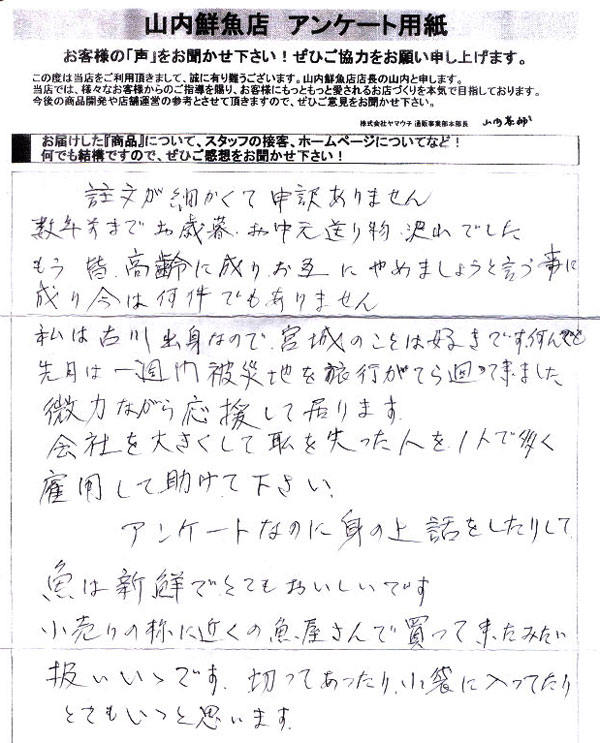 山内鮮魚店 アンケート用紙
お客様の「声」をお聞かせ下さい！ぜひご協力をお願い申し上げます。
この度は当店をご利用頂きまして、誠に有り難うございます。山内鮮魚店店長の山内と申します。
当店では、様々なお客様からのご指導を賜り、お客様にもっともっと愛されるお店づくりを本気で目指しております。
今後の商品開発や店舗運営の参考とさせて頂きますので、ぜひご意見をお聞かせ下さい。
株式会社ヤマウチ 通販事業部本部長
お届けした『商品』について、スタッフの接客、ホームページについてなど！
何でも結構ですので、ぜひご感想をお聞かせ下さい！
註文が細かくて申訳ありません
数年前までお歳暮、お中元送り物沢山でした
もう皆、高齢に成りお互にやめましょうと言う事に
成り今は何件でもありません
私は古川出身なので、宮城のことは好きです何んでも
先月は一週間被災地を旅行がてら廻って来ました
微力ながら応援して居ります。
会社を大きくして職を失った人を、1人で多く
雇用して助けて下さい。
アンケートなのに身の上話をしたりして
魚は新鮮でとてもおいしいです
小売りの様に近くの魚屋さんで買って来たみたい
扱いいゝです。切ってあったり、小袋に入ってたり
とてもいゝと思います。